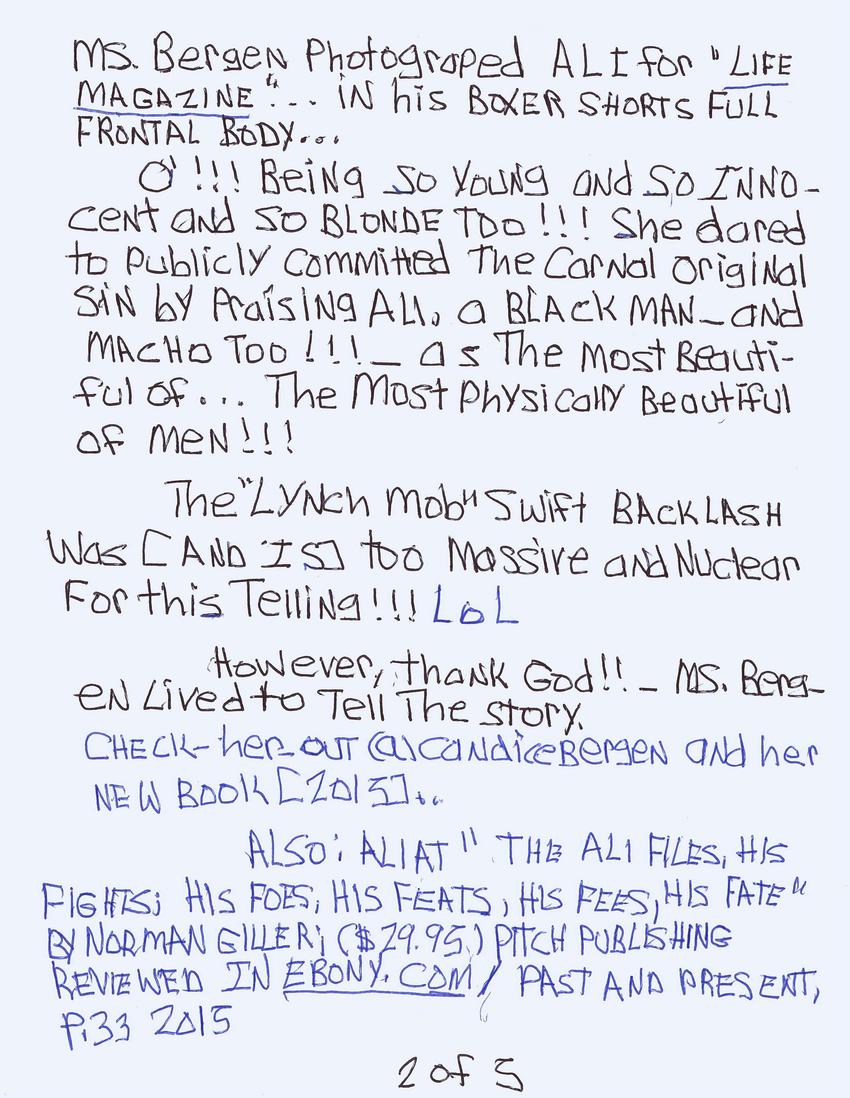 Ms. Bergen Photograped ALI for "LIFE
MAGAZINE"... iN his BOXER SHORTS FULL
FRONTAL BODY...
O' !!! BeiNg so YouNg aNd SO INNO-
ceNt aNd so BLONDE Too !!! She dared
to Publicly Committed The CarNal OrigiNal
SiN by PraisiNg ALI, a BLACK MAN_aNd
MACHO Too !!!_ as The Most Beauti-
ful of... The Most Physically Beautiful
of MeN!!!
The "LYNch Mob" Swift BACKLASH
Was [AND IS] too Massive aNd Nuclear
For this TelliNg!!! LoL
However, thaNK God!!_ Ms. Berg-
eN Lived to Tell The story.
CHECK-her-OUT @CaNdiceBergeN aNd her
NEW BOOK [2015]...
ALSO: ALI AT " THE ALI FILES, HIS
FIGHTS; HIS FOES, HIS FEATS, HIS FEES, HIS FATE"
BY NORMAN GILLER; ($29.95) PITCH PUBLISHING
REVIEWED IN EBONY.COM/ PAST AND PRESENT,
P.33 2015
2 of 5